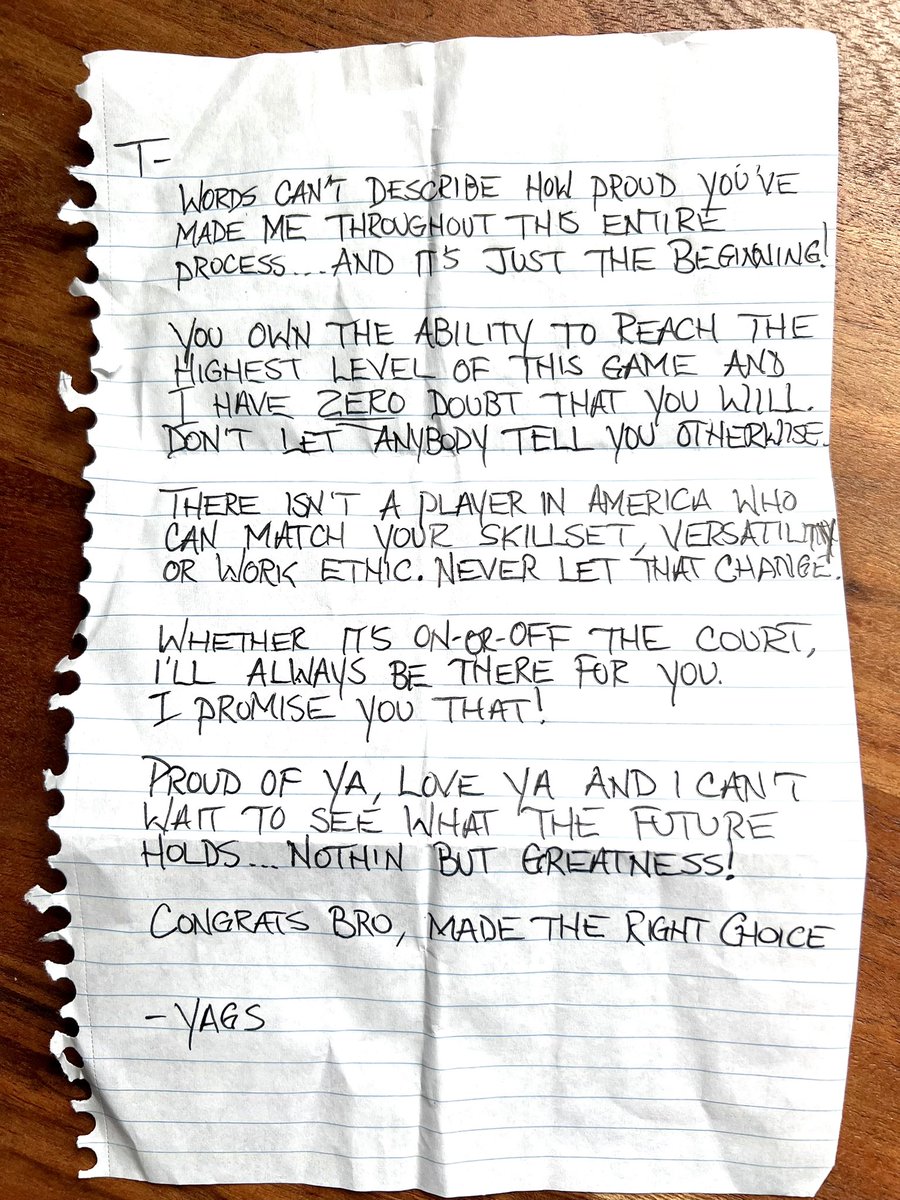 T-
WORDS CAN'T DESCRIBE HOW PROUD YOU'VE
MADE ME THROUGHOUT THIS ENTIRE
PROCESS.... AND IT'S JUST THE BEGINNING!
YOU OWN THE ABILITY TO REACH THE
HIGHEST LEVEL OF THIS GAME AND
I HAVE ZERO DOUBT THAT YOU WILL.
DON'T LET ANYBODY TELL YOU OTHERWISE.
THERE ISN'T A PLAYER IN AMERICA WHO
CAN MATCH YOUR SKILLSET, VERSATILITY
OR WORK ETHIC. NEVER LET THAT CHANGE.
WHETHER IT'S ON-OR-OFF THE COURT,
I'LL ALWAYS BE THERE FOR YOU.
I PROMISE YOU THAT!
PROUD OF YA, LOVE YA AND I CAN'T
WAIT TO SEE WHAT THE FUTURE
HOLDS... NOTHIN BUT GREATNESS!
CONGRATS BRO, MADE THE RIGHT CHOICE
- YAGS